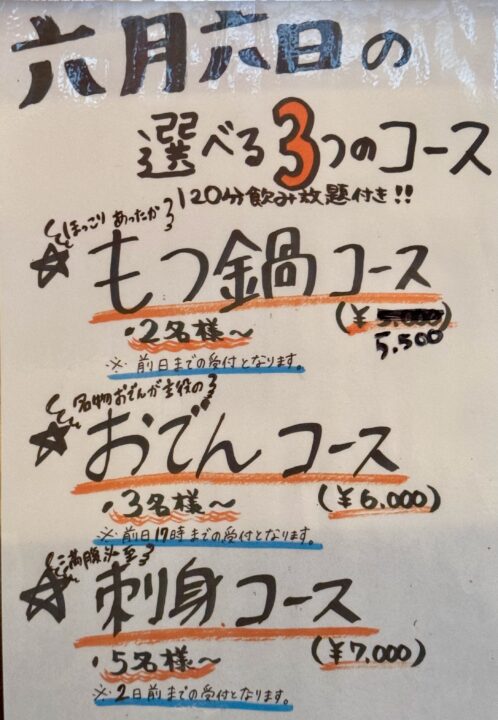 六月六日の
選べる3つのコース
120分飲み放題付き!!
ほっこり あったか
☆もつ鍋コース
・2名様~ (¥5.000)
5.500
※前日までの受付となります。
名物おでんが主役の
☆おでんコース
・3名様~ (¥6.000)
※前日17時までの受付となります。
満腹
☆刺身コース
・5名様~ (¥7.000)
※2日前までの受付となります。